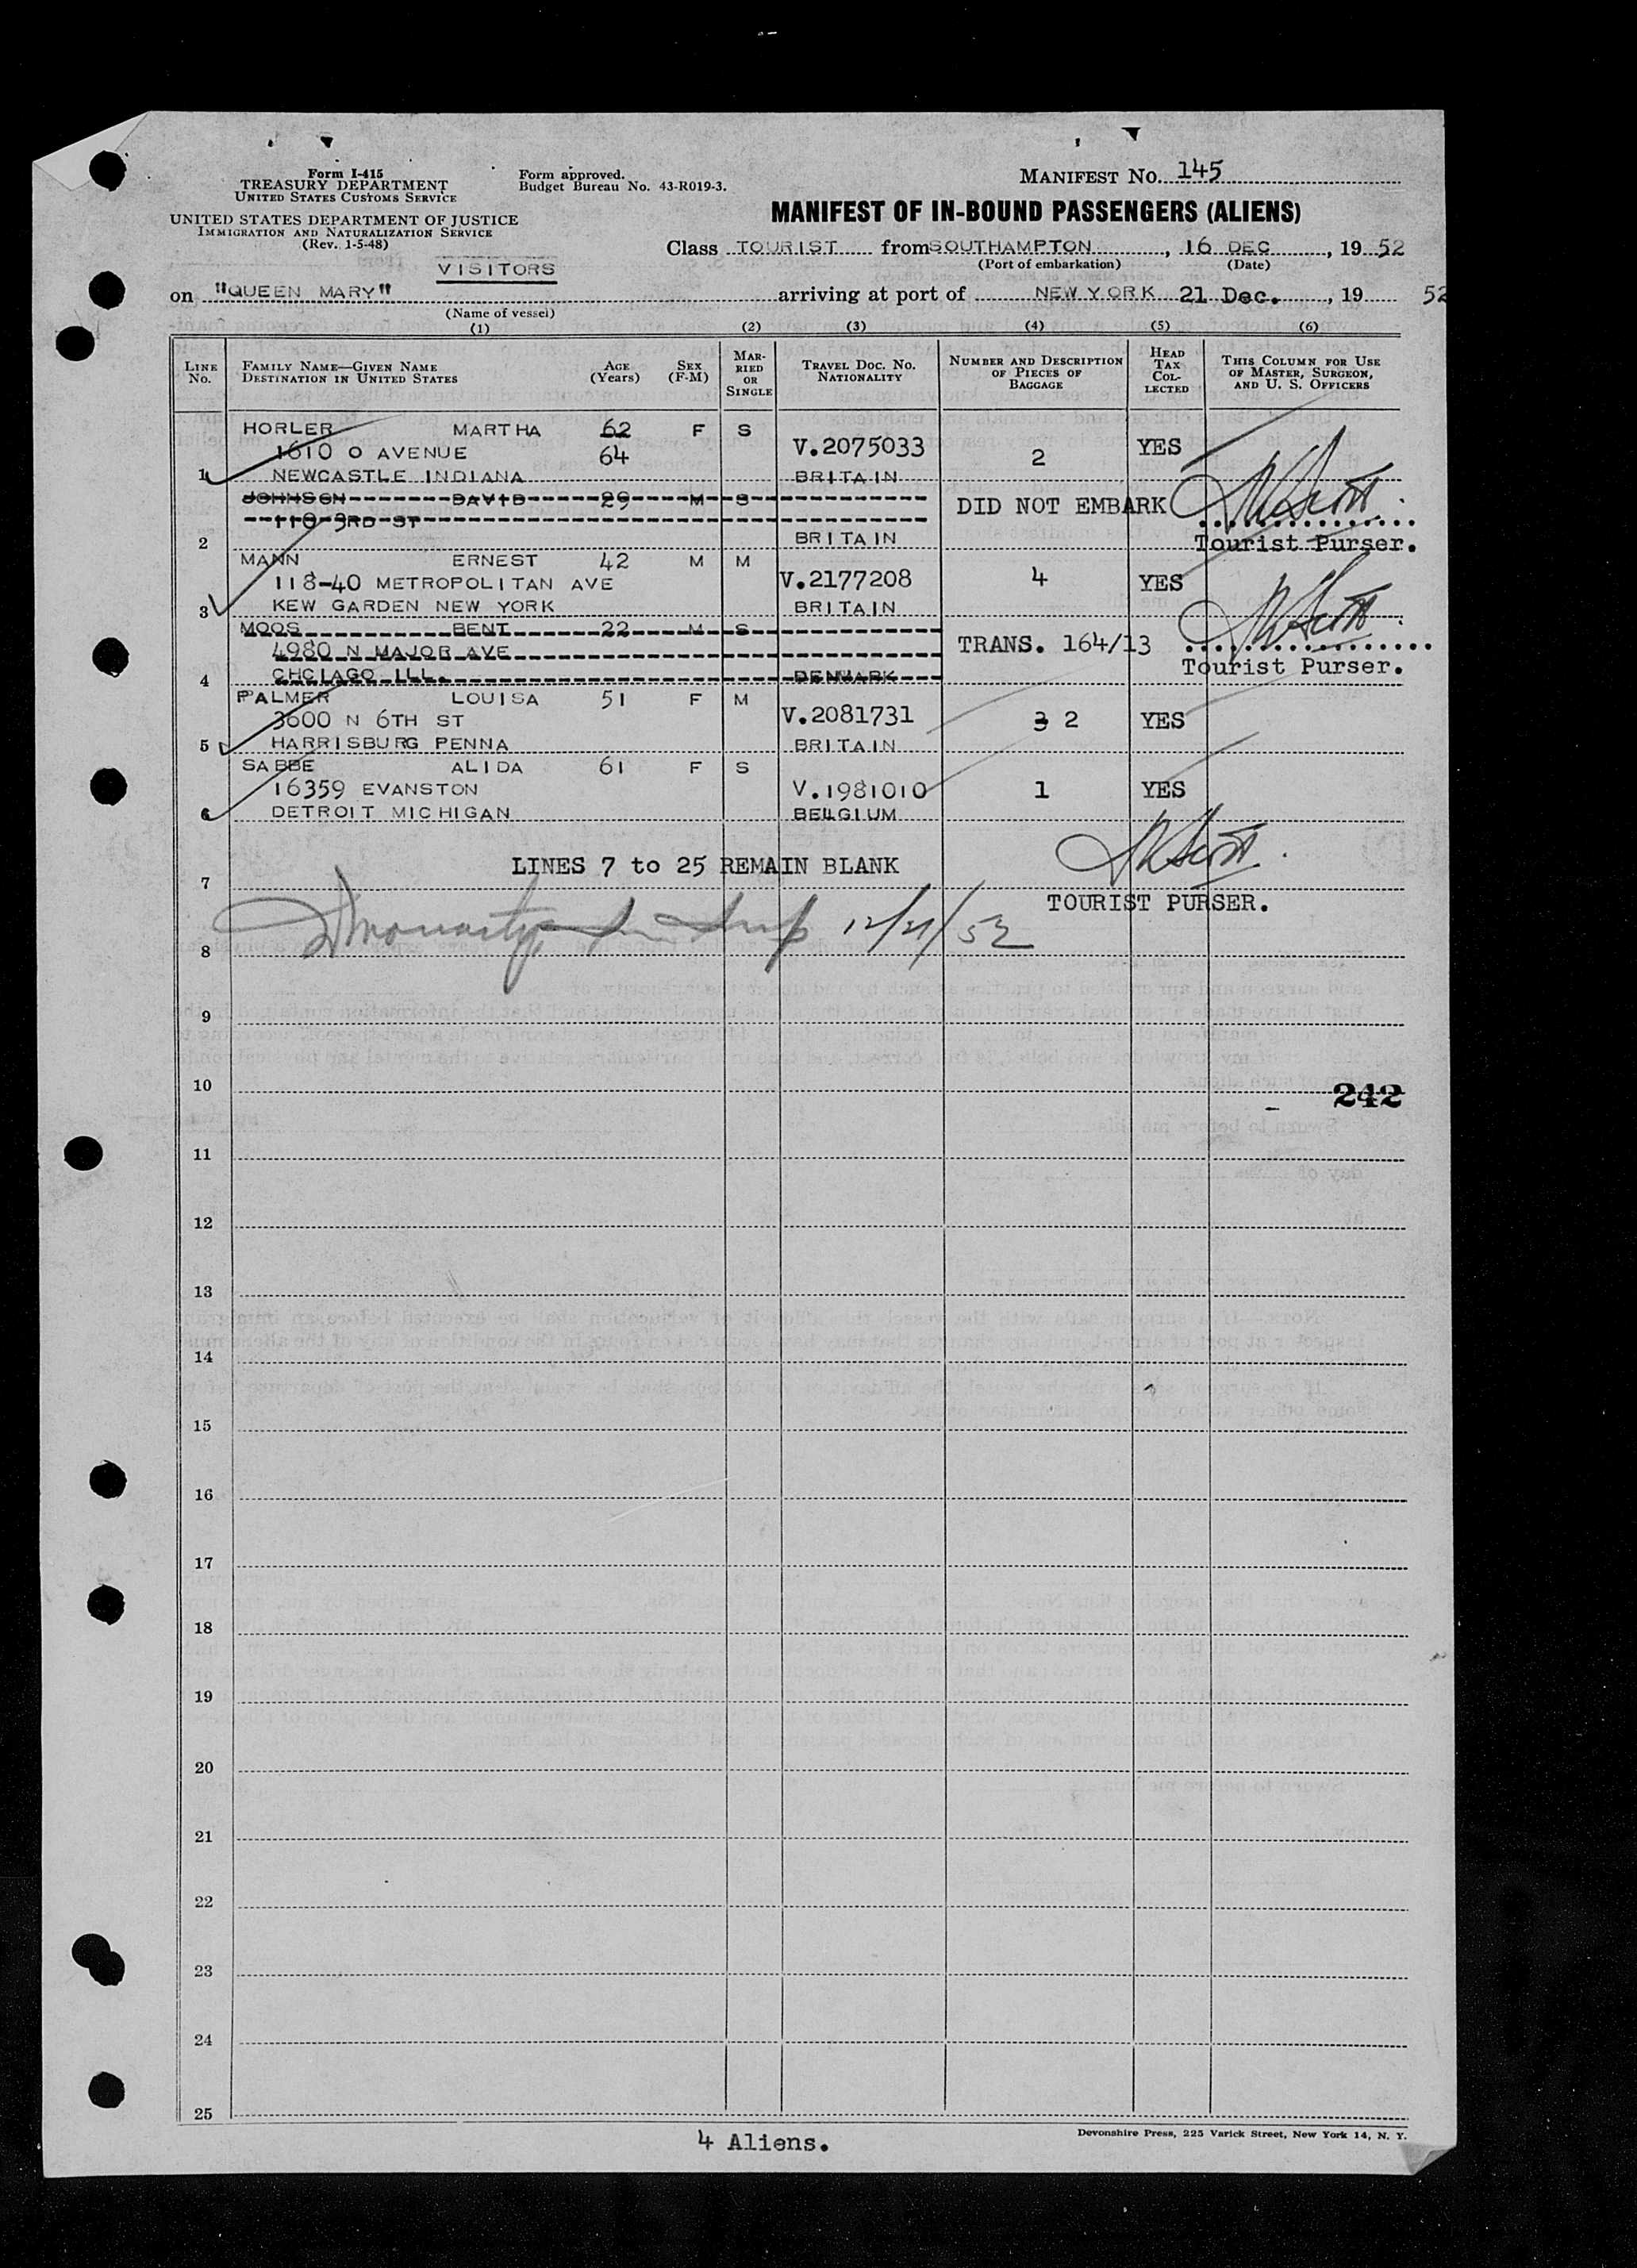 Form I-415
TREASURY DEPARTMENT
UNITED STATES CUSTOMS SERVICE
UNITED STATES DEPARTMENT OF JUSTICE
IMMIGRATION AND NATURALIZATION SERVICE
(Rev. 1-5-48)
Form approved.
Budget Bureau No. 43-R019-3.
MANIFEST No. 145
MANIFEST OF IN-BOUND PASSENGERS (ALIENS)
Class TOURIST from SOUTHAMPTON, 16 DEC, 19 52
(Port of embarkation) (Date)
VISITORS
on "QUEEN MARY" arriving at port of NEW YORK 21 Dec., 19 52
(Name of vessel)
(1) (2) (3) (4) (5) (6)
LINE No.
FAMILY NAME—GIVEN NAME
DESTINATION IN UNITED STATES
AGE (Years)
SEX (F-M)
MARRIED OR SINGLE
TRAVEL DOC. NO.
NATIONALITY
NUMBER AND DESCRIPTION OF PIECES OF BAGGAGE
HEAD TAX COLLECTED
THIS COLUMN FOR USE OF MASTER, SURGEON, AND U. S. OFFICERS
HORLER MARTHA 62 F S
1610 O AVENUE 64 V.2075033 2 YES
1 NEWCASTLE INDIANA BRITAIN
JOHNSON DAVID 29 M S DID NOT EMBARK
110 3RD ST
2 BRITAIN Tourist Purser.
MANN ERNEST 42 M M
118-40 METROPOLITAN AVE V.2177208 4 YES
3 KEW GARDEN NEW YORK BRITAIN
MOOS BENT 22 M S
4980 N MAJOR AVE TRANS. 164/13
4 CHCIAGO ILL. DENMARK Tourist Purser.
PALMER LOUISA 51 F M
3600 N 6TH ST V.2081731 3 2 YES
5 HARRISBURG PENNA BRITAIN
SABBE ALIDA 61 F S
16359 EVANSTON V.1981010 1 YES
6 DETROIT MICHIGAN BELGIUM
LINES 7 to 25 REMAIN BLANK
7
TOURIST PURSER.
12/21/52
8
9
10
242
11
12
13
14
15
16
17
18
19
20
21
22
23
24
25
4 Aliens.
Devonshire Press, 225 Varick Street, New York 14, N. Y.